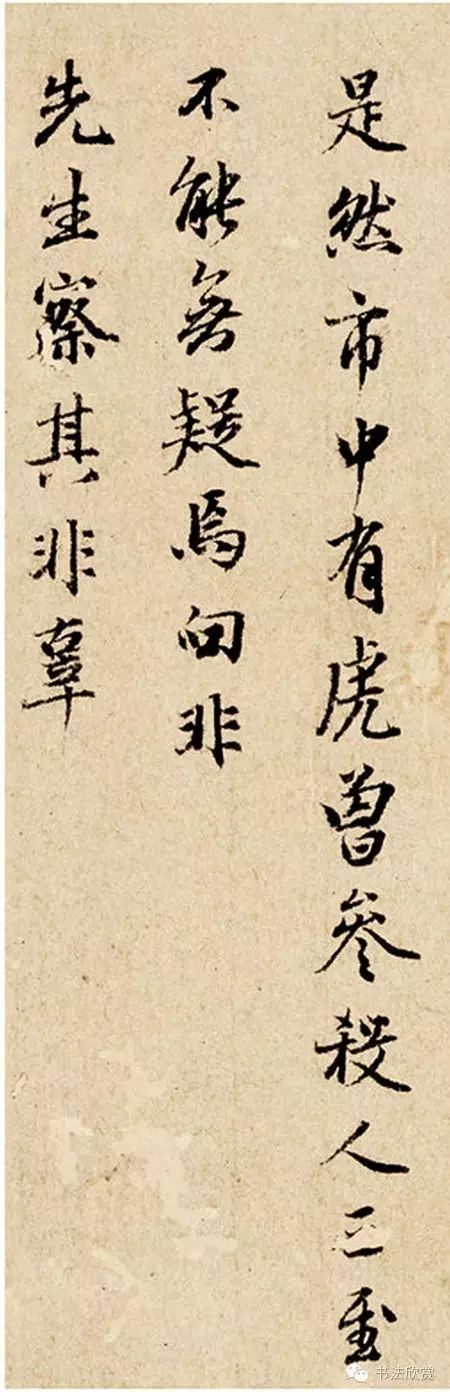 是然市中有虎曾参殺人三至
不能無疑焉向非
先生察其非辜
书法欣赏